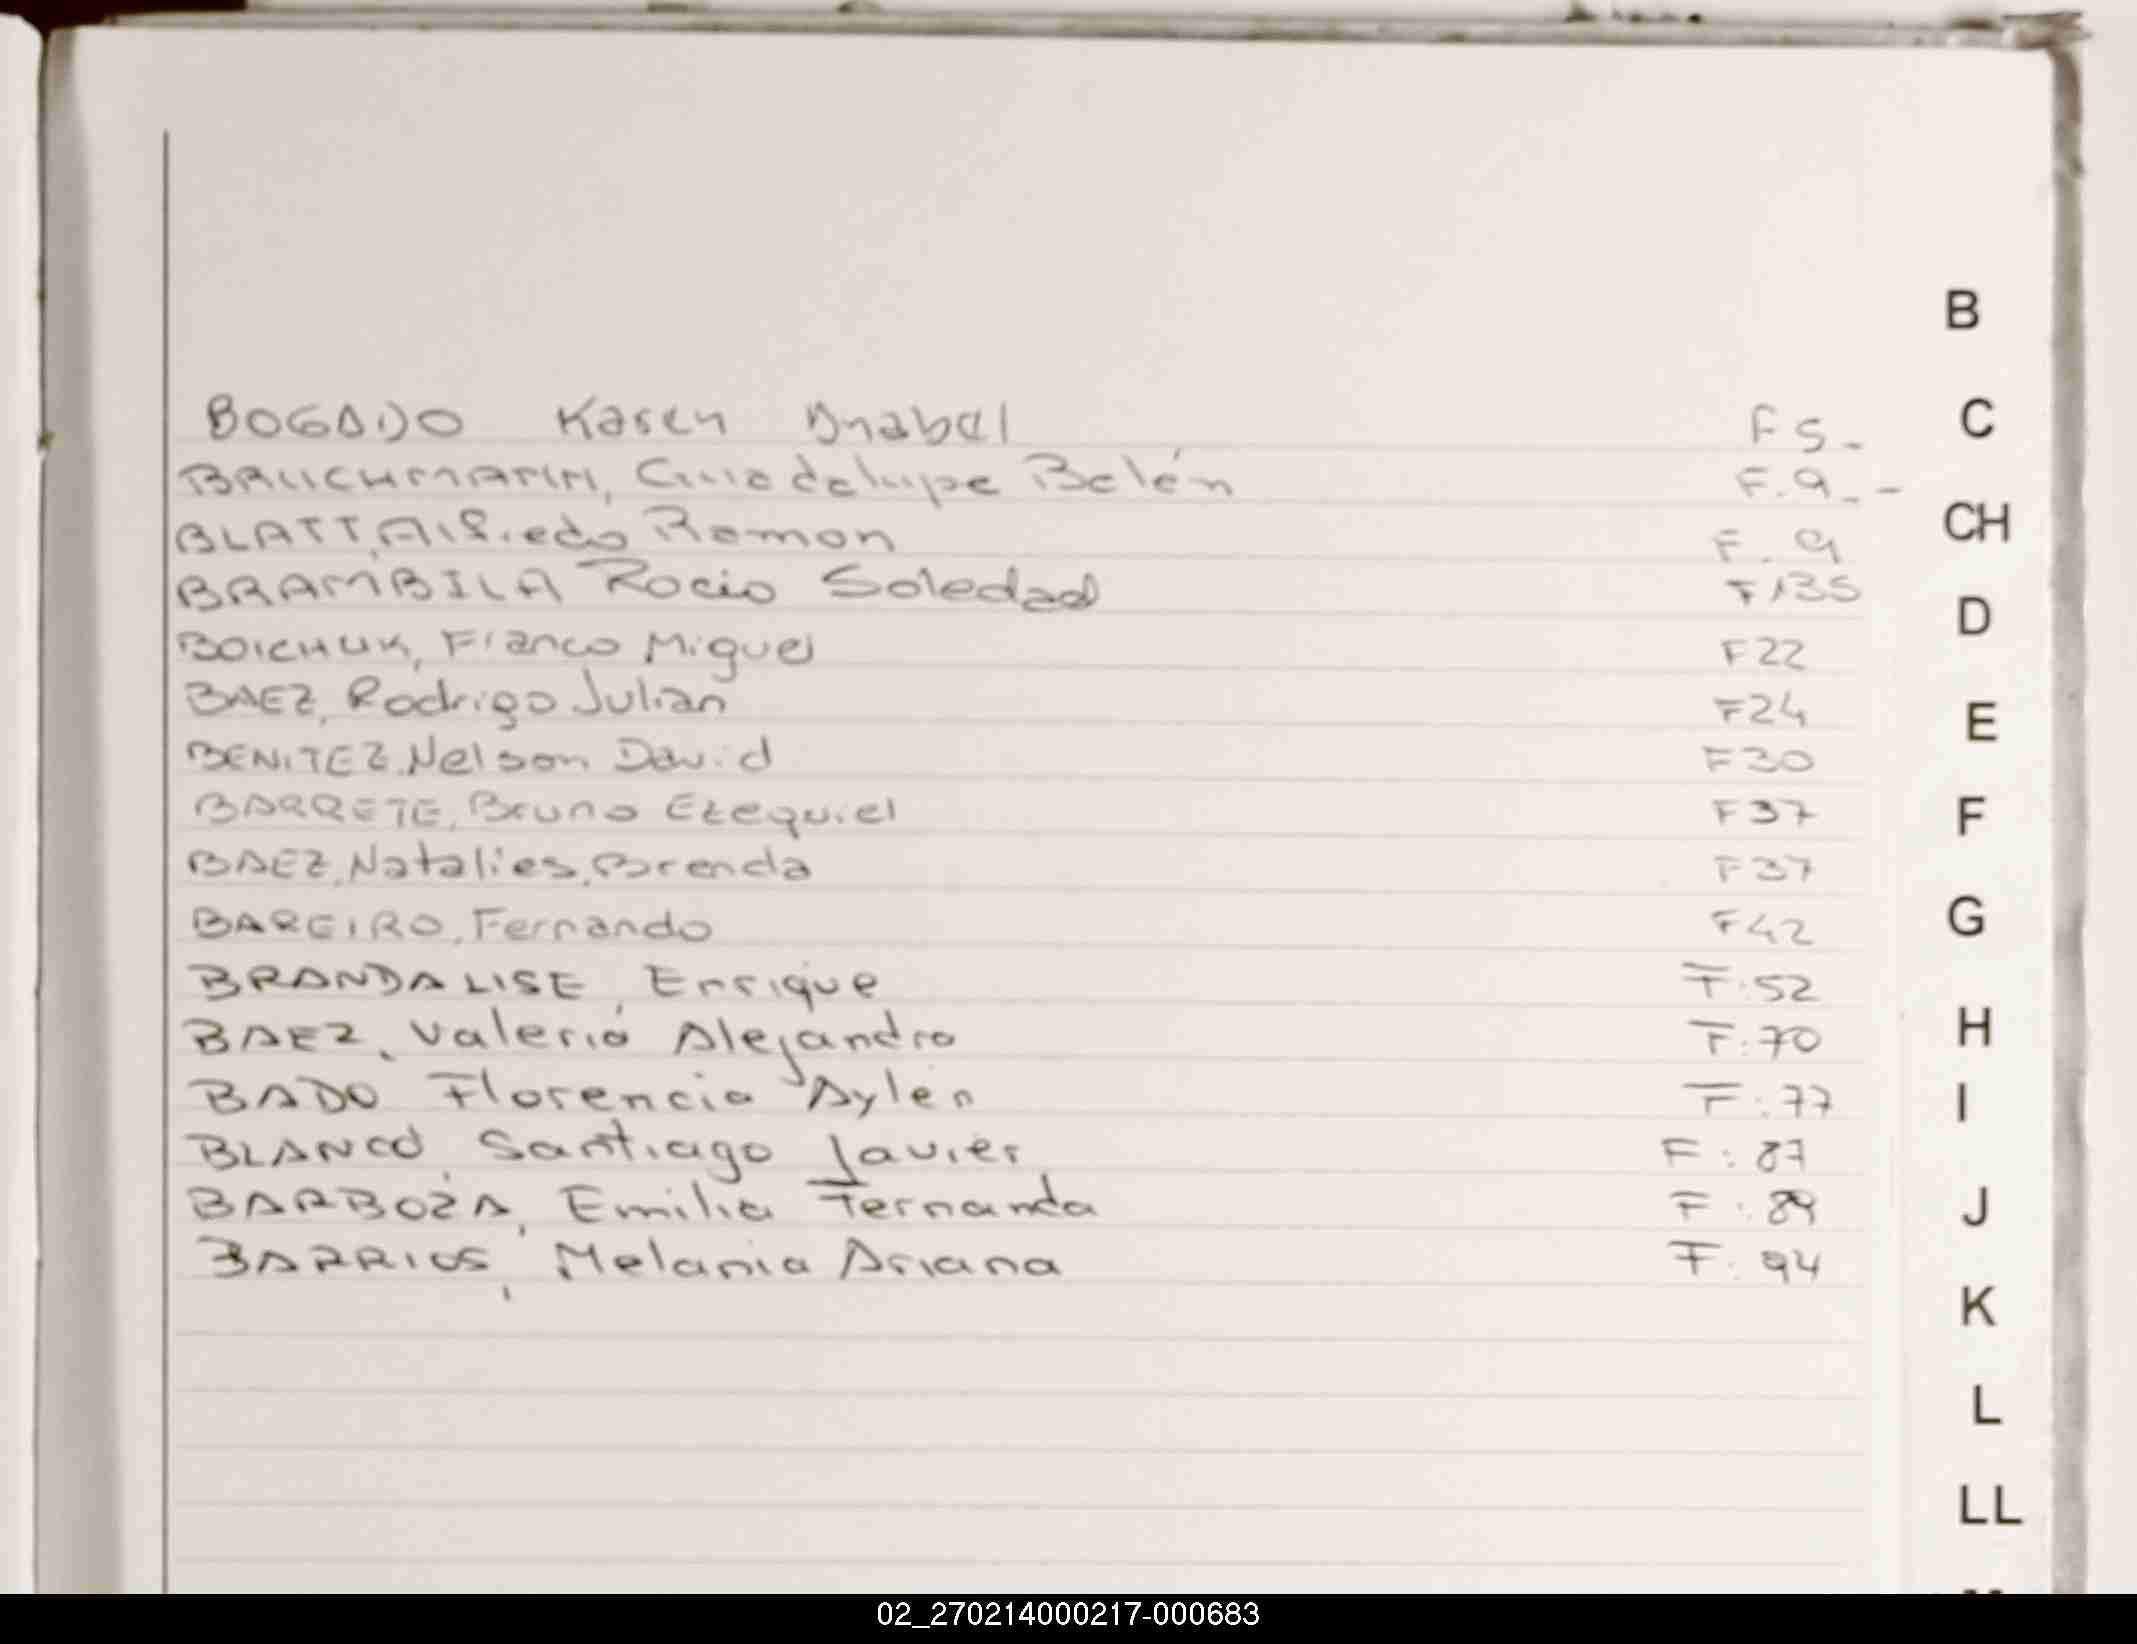 B
BOGADO Karen Anabel F 5-
C
BRUCHMANN, Guadelupe Belén F. 9_-
CH
BLATT, Alfredo Ramon F. 9
BRAMBILA Rocio Soledad F135
D
BOICHUK, Franco Miguel F22
BAEZ, Rodrigo Julian F24
E
BENITEZ, Nelson David F30
BARRETE, Bruno Ezequiel F37
F
BAEZ, Natalies, Brenda F37
BAREIRO, Fernando F42
G
BRANDALISE, Enrique F:52
BAEZ, Valerio Alejandro F:70
H
BADO Florencia Aylen F:77
I
BLANCO, Santiago Javier F:87
BARBOZA, Emilia Fernanda F:89
J
BARRIOS, Melania Ariana F:94
K
L
LL
02_270214000217-000683